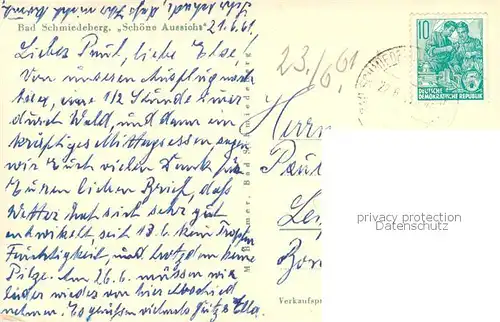 Bad Schmiedeberg. „Schöne Aussicht"
21.6.61
Liebes Paul, liebe Else,
Von unserem Ausflug nach
eine 1/2 Stunde
durch Wald, und dann ein
kräftiges Mittagessen, sagen
wir Euch vielen Dank für
Euren lieben Brief, daß
Wetter hat sich sehr gut
entwickelt, seit 18.6. kein Tropfen
Feuchtigkeit, und trotzdem keine
Pilze. Am 26.6. müssen wir
leider wieder von hier Abschied
nehmen. Es grüssen vielmals Ella.
23/6 61
10
DEUTSCHE
DEMOKRATISCHE REPUBLIK
Herrn
Paul
Lei
privacy protection
Datenschutz
Verkaufspr
Bad Schmiedeberg